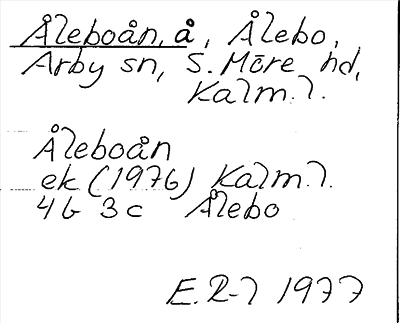 Åleboån, å, Ålebo,
Arby sn, S. Möre hd,
Kalm. l.
Åleboån
ek (1976) Kalm. l.
4G 3c Ålebo
E. R-l 1977